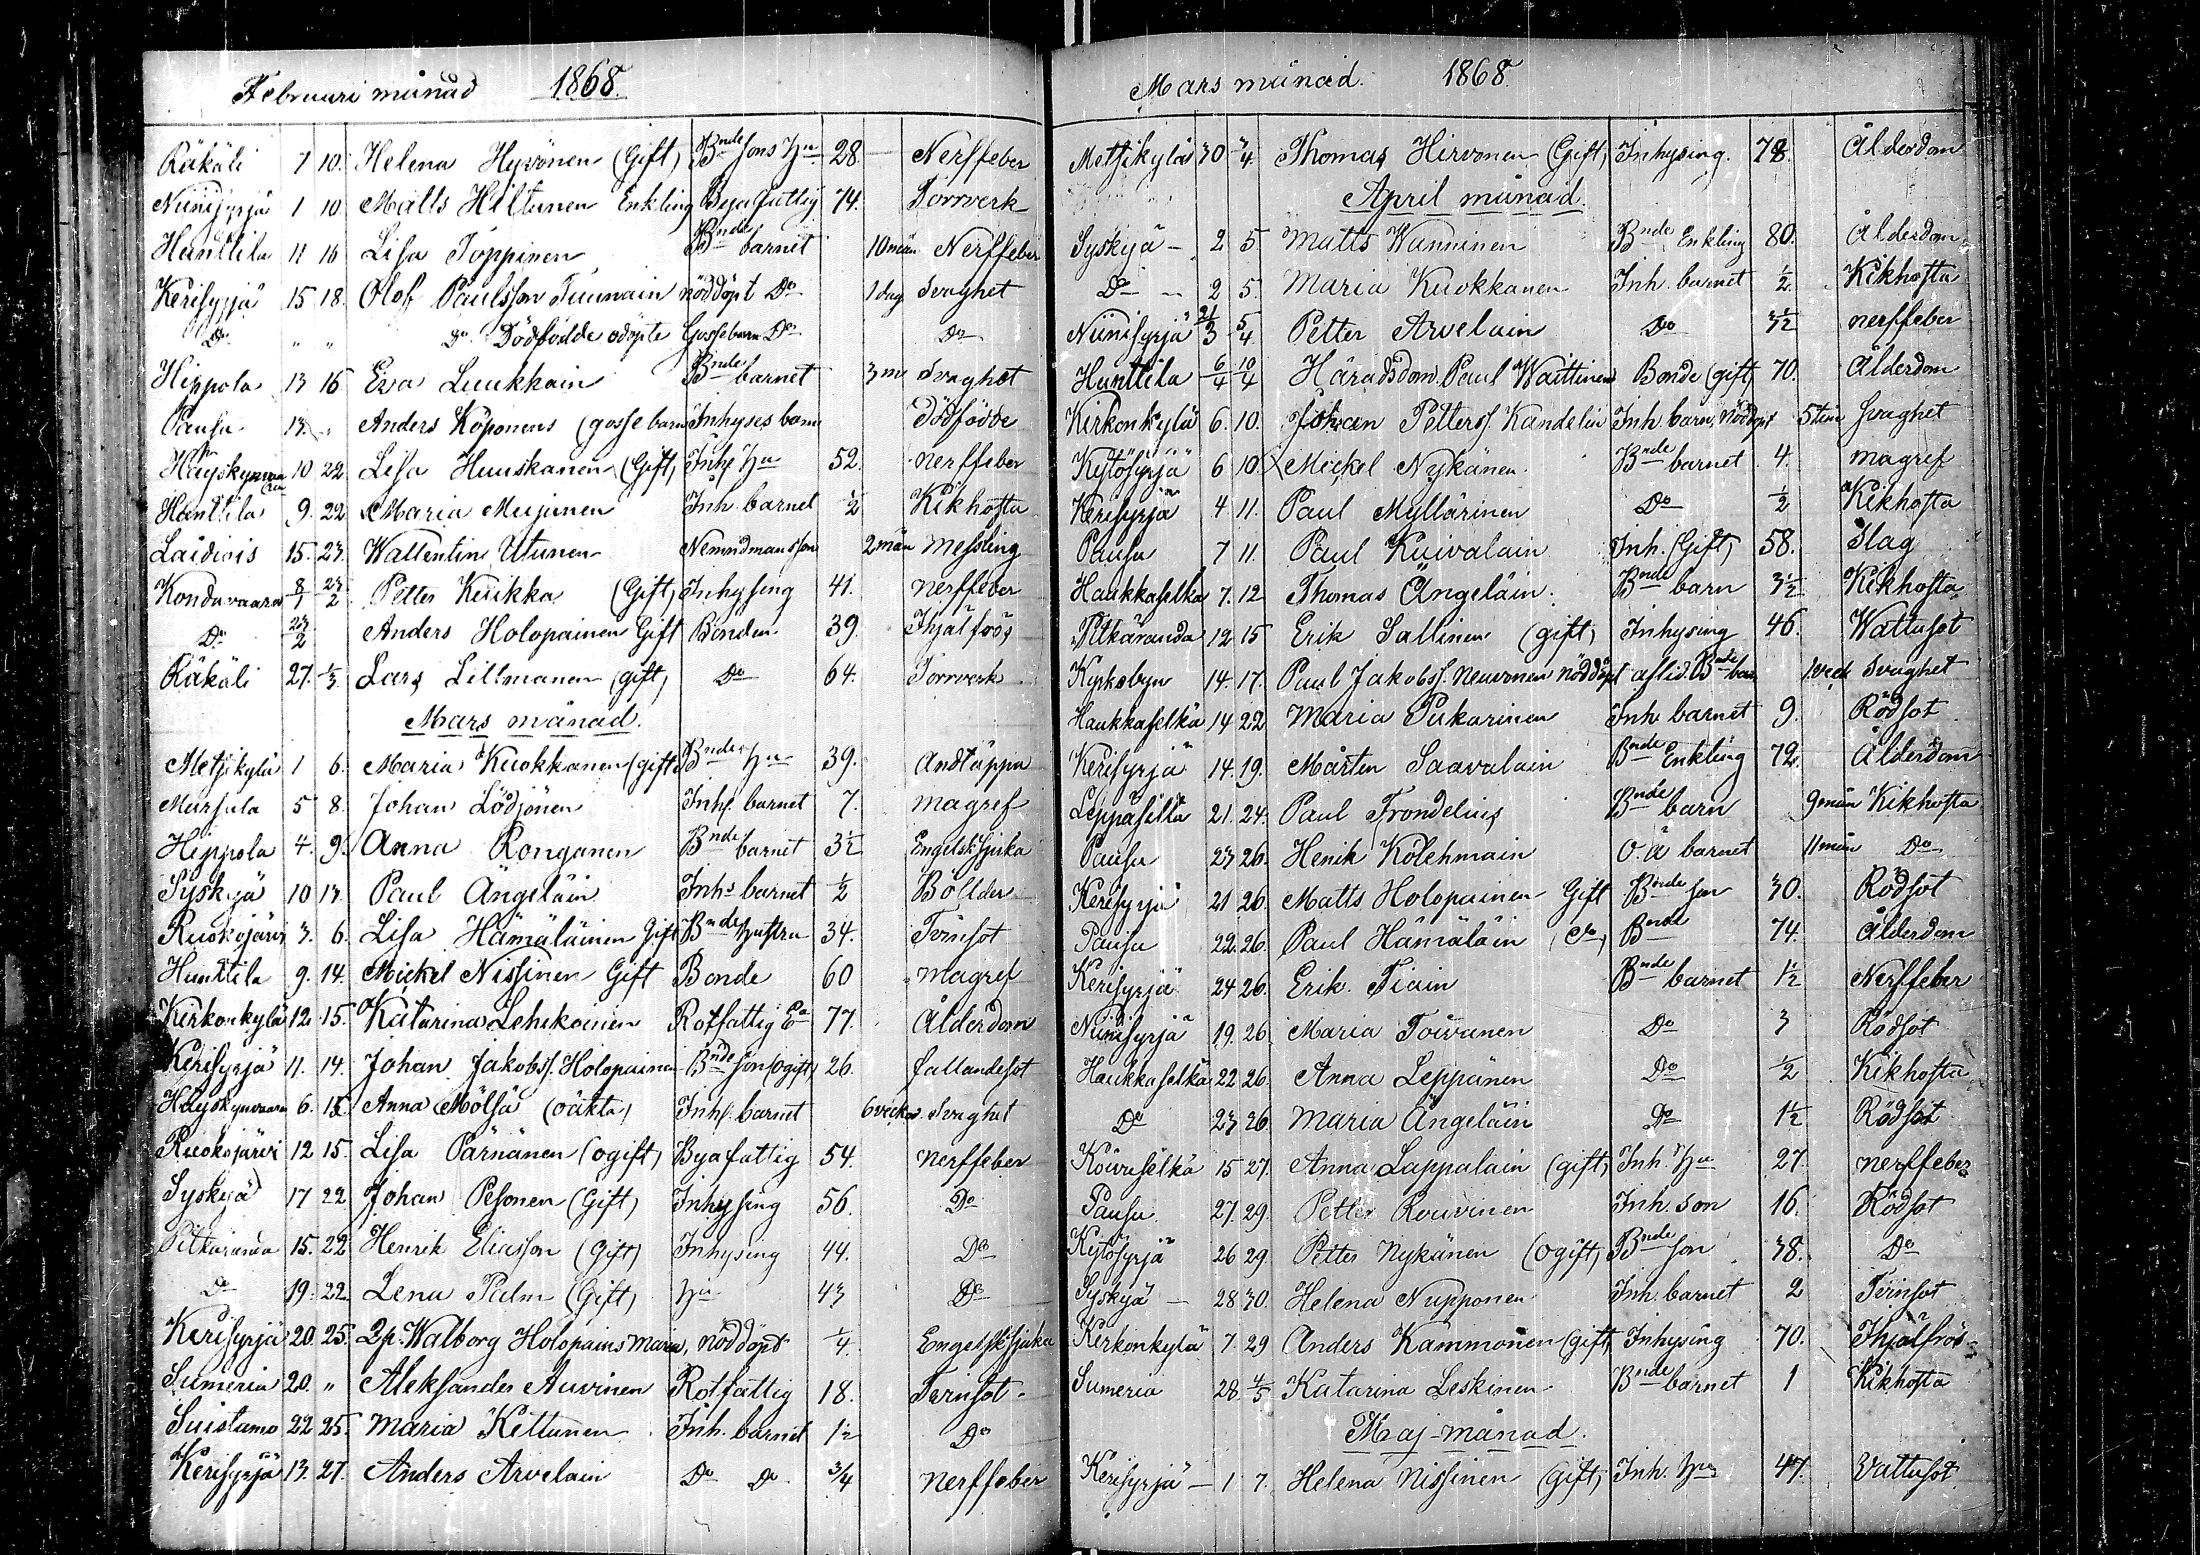 Februari månad 1868.
Räkäli 7 10. Helena Hyvönen (Gift) Bnde sons Hu 28 Nerffeber
Niinisyrjä 1 10 Matts Hiltunen Enkling Byafattig 74. Torrverk
Hunttila 11 16 Lisa Toppinen Bnde barnet 10 mån Nerffeber
Kerisyrjä 15 18. Olof Paulsson Tiunain nöddöpt Do 1 dag Svaghet
Do " " Do Dödfödde odöpte Gossebarn Do Do
Hippola 13 16 Eva Luukkain Bnde barnet 3 m Svaghet
Pausu 13. " Anders Köponens (gossebarn Inhyses barn Dödfödde
10 22 Lisa Huuskanen (Gift) Inhs Hu 52. nerffeber
Hunttila 9. 22 Maria Mujunen Inh. barnet ½ Kikhosta
Laidiois 15. 23. Wallentin Utunen Nemndmansson 2 mån Messling
Konduvaara 8/1 23/2 Petter Kuikka (Gift) Inhysing 41. nerffeber
Do 23/2 Anders Holopainen Gift Bonden 39. Ihjälfrös
Räkäli 27. 1/3. Lars Lillmanen (gift) Do 64. Torrverk
Mars månad.
Metsikylä 1 6. Maria Kuokkanen (gift) Bndes Hu 39. Andtäppa
Mursula 5 8. Johan Lödjönen Inhs. barnet 7. magref
Hippola 4. 9. Anna Ronganen Bnde barnet 3½ Engelsk Sjuka
Syskyä 10 13 Paul Ängeläin Inhs barnet ½ Bölder
Ruokojärvi 3. 6. Lisa Hämäläinen Gift Bnde hustru 34. Tvinsot
Hunttila 9. 14. Mickel Nissinen Gift Bonde 60 magref
Kirkonkylä 12 15. Katarina Lehikoinen Rotfattig Ea 77. Ålderdom
Kerisyrjä 11. 14. Johan Jakobss. Holopainen Bnde Son (ogift) 26. fallandesot
Häyskynvaara 6. 15 Anna Mölsä (oäkta) Inhs. barnet 6 veckor Svaghet
Ruokojärvi 12 15. Lisa Pärnänen (ogift) Byafattig 54. nerffeber
Syskyä 17 22 Johan Pesonen (Gift) Inhysing 56. Do
Pitkäranda 15. 22 Henrik Eliasson (Gift) Inhysing 44. Do
Do 19. 22. Lena Palm (Gift) Hu 43 Do
Kerisyrjä 20. 25. Qp. Walborg Holopains Maria, nöddöpt ¼ Engelsk sjuka
Sumeria 20. " Aleksander Auvinen Rotfattig 18. Tvinsot
Suistamo 22 25. Maria Kettunen Inh. barnet 1½ Do
Kerisyrjä 13. 27. Anders Arvelain Do Do ¾ nerffeber
Mars månad. 1868.
Metsikylä 30 3/4 Thomas Hirvonen (Gift) Inhysing. 78. Ålderdom
April månad.
Syskyä 2 5 Matts Wanninen Bnde Enkling 80. Ålderdom
Do 2 5. Maria Kuokkanen Inh. barnet ½ Kikhosta
Niinisyrjä 21/3 5/4 Petter Arvelain Do 3½ nerffeber
Hunttila 6/4 10/4 Häradsdom. Paul Waittinen Bonde (gift) 70. Ålderdom
Kirkonkylä 6. 10. Johan Petterss. Kandelin Inh. barn, nöddöpt 5 tim Svaghet
Kytösyrjä 6 10. Mickel Nykänen. Bnde barnet 4. magref
Kerisyrjä 4 11. Paul Myllärinen Do ½ Kikhosta
Pausu 7 11. Paul Kuivalain Inh. (Gift) 58. Slag
Haukkaselkä 7. 12 Thomas Ängeläin. Bnde barn 3½ Kikhosta
Pitkäranda 12 15 Erik Sallinen (gift) Inhysing 46. Wattusot
Kyrkobyn 14. 17. Paul Jakobss. Neuvonen nöddöpt aflid. Bnde barn 1 veck Svaghet
Haukkaselkä 14 22 Maria Pukarinen Inh barnet 9. Rödsot
Kerisyrjä 14. 19. Mårten Saavalain Bnde Enkling 72. Ålderdom
Leppäsilta 21. 24. Paul Trondelius Bnde barn 9 mån Kikhosta
Pausu 23 26. Henik Kolehmain O. ä barnet 11 mån Do
Kerisyrjä 21 26. Matts Holopainen Gift Bonde son 30. Rödsot
Pausu 22. 26. Paul Hämäläin (Do) Bnde 74. Ålderdom
Kerisyrjä 24 26. Erik Tiain Bnde barnet 1½ Nerffeber
Niinisyrjä 19. 26 Maria Toivanen Do 3 Rödsot
Haukkaselkä 22 26. Anna Leppänen Do ½ Kikhosta
Do 23 26 Maria Ängeläin Do 1½ Rödsot
Koiruselkä 15 27. Anna Lappalain (gift) Inh. Hu 27 nerffeber
Pausu 27. 29. Petter Rouvinen Inh. son 16. Rödsot
Kytösyrjä 26 29. Petter Nykänen (ogift) Bnde son 38. Do
Syskyä 28 30. Helena Nupponen Inh. barnet 2 Tvinsot
Kirkonkylä 7. 29 Anders Kammonen (gift) Inhysing 70. Ihjälfrös
Sumeria 28. 4/5 Katarina Leskinen Bnde barnet 1 Kikhosta
Maj månad.
Kerisyrjä 1 7. Helena Nissinen (Gift) Inh. Hu 47. Vattusot